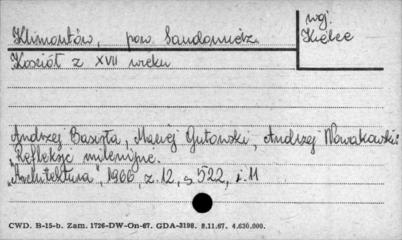 Klimontów, pow. Sandomierz.
woj.
Kielce
Kościół z XVII wieku
Andrzej Basista, Maciej Gutowski, Andrzej Nowakowski:
"Refleksje milenijne.
"Architektura", 1966, z. 12, s. 522, i. 11
CWD. B-15-b. Zam. 1726-DW-On-67. GDA-3198. 8.11.67. 4.630.000.